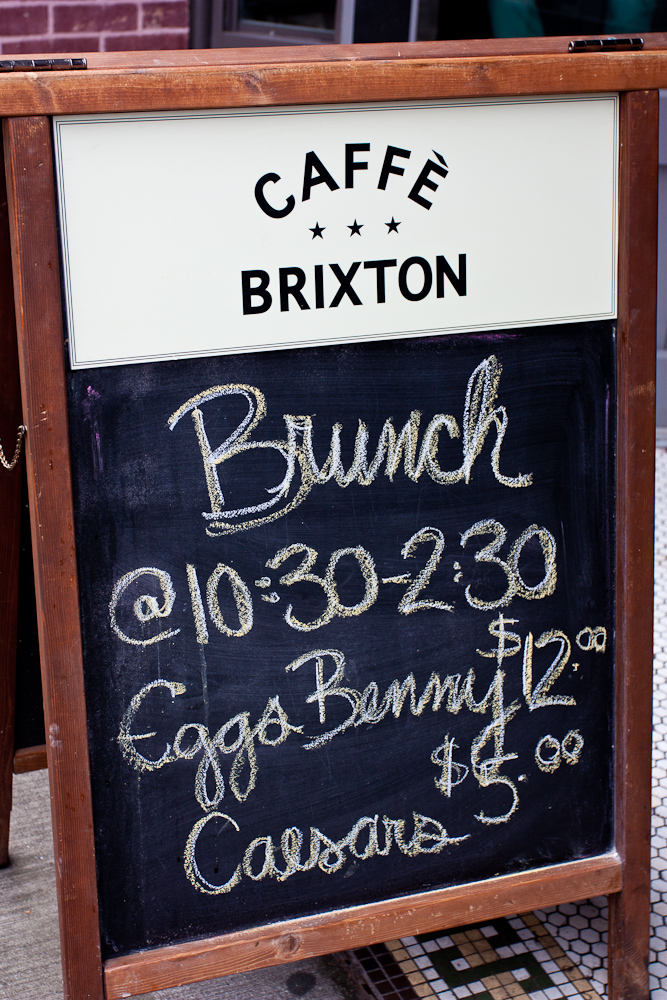 CAFFÈ
★ ★ ★
BRIXTON
Brunch
@ 10:30-2:30
Eggs Benny $12.00
$5.00
Caesars